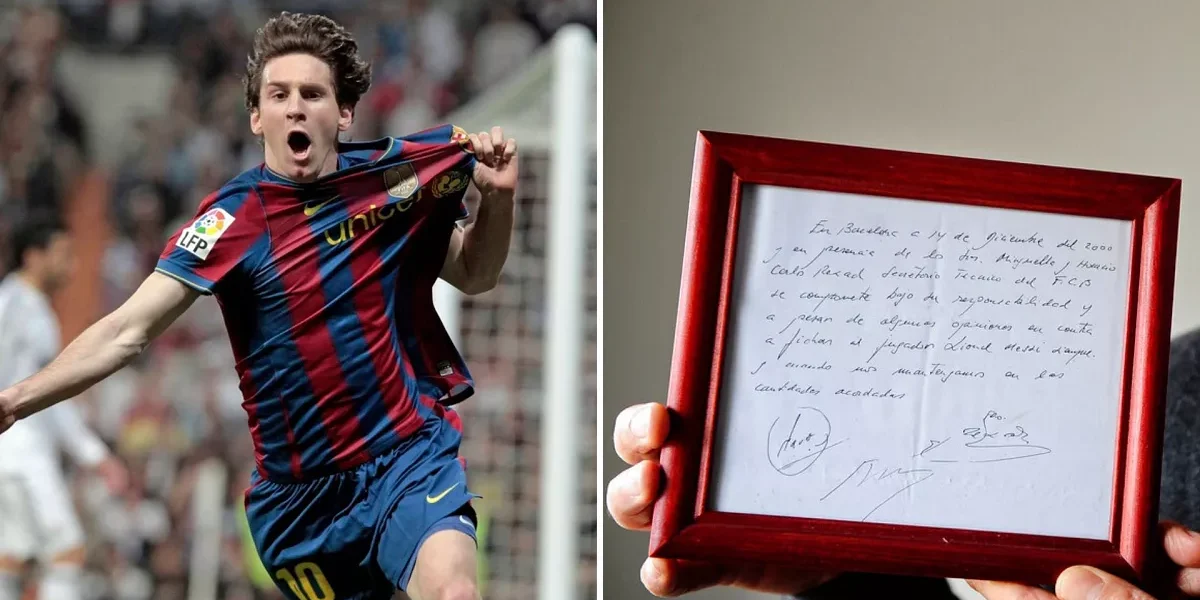 LFP
unicef
10
En Barcelona a 14 de Diciembre del 2000
y en presencia de los Srs. Minguella y Horacio
Carlo Rexach Secretario Técnico del F.C.B
se compromete bajo su responsabilidad y
a pesar de algunas opiniones en contra
a fichar al jugador Lionel Messi siempre
y cuando nos mantengamos en las
cantidades acordadas